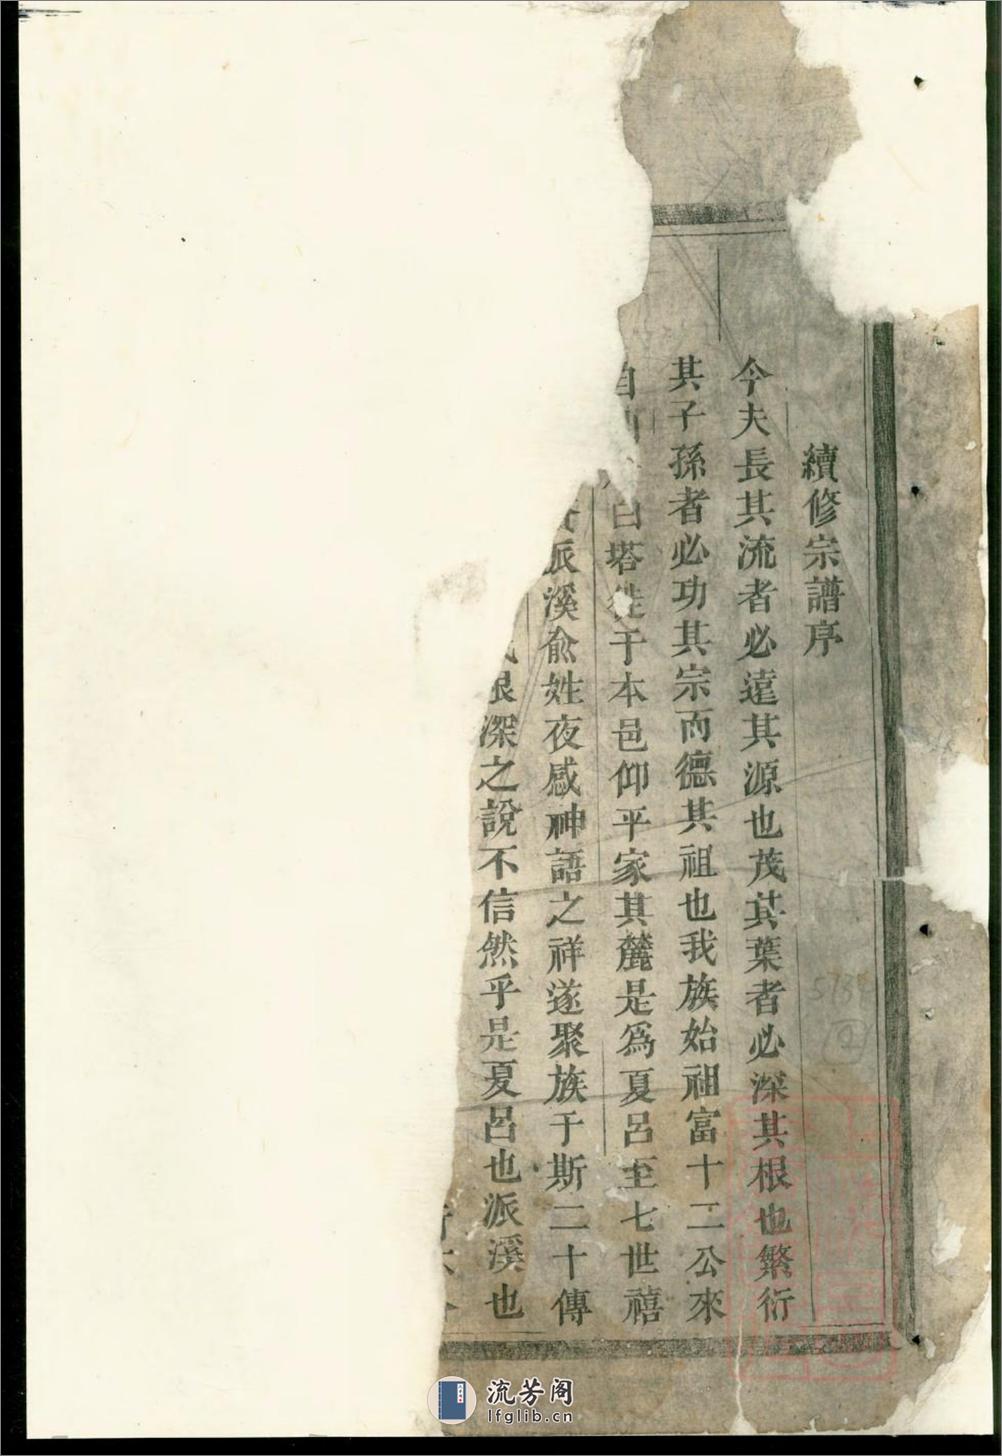 續修宗譜序
今夫長其流者必遠其源也茂其葉者必深其根也繁衍
其子孫者必功其宗而德其祖也我族始祖富十二公來
自白塔徙于本邑仰平家其麓是爲夏呂至七世禧
派溪俞姓夜感神語之祥遂聚族于斯二十傳
根深之說不信然乎是夏呂也派溪也
流芳阁
lfglib.cn